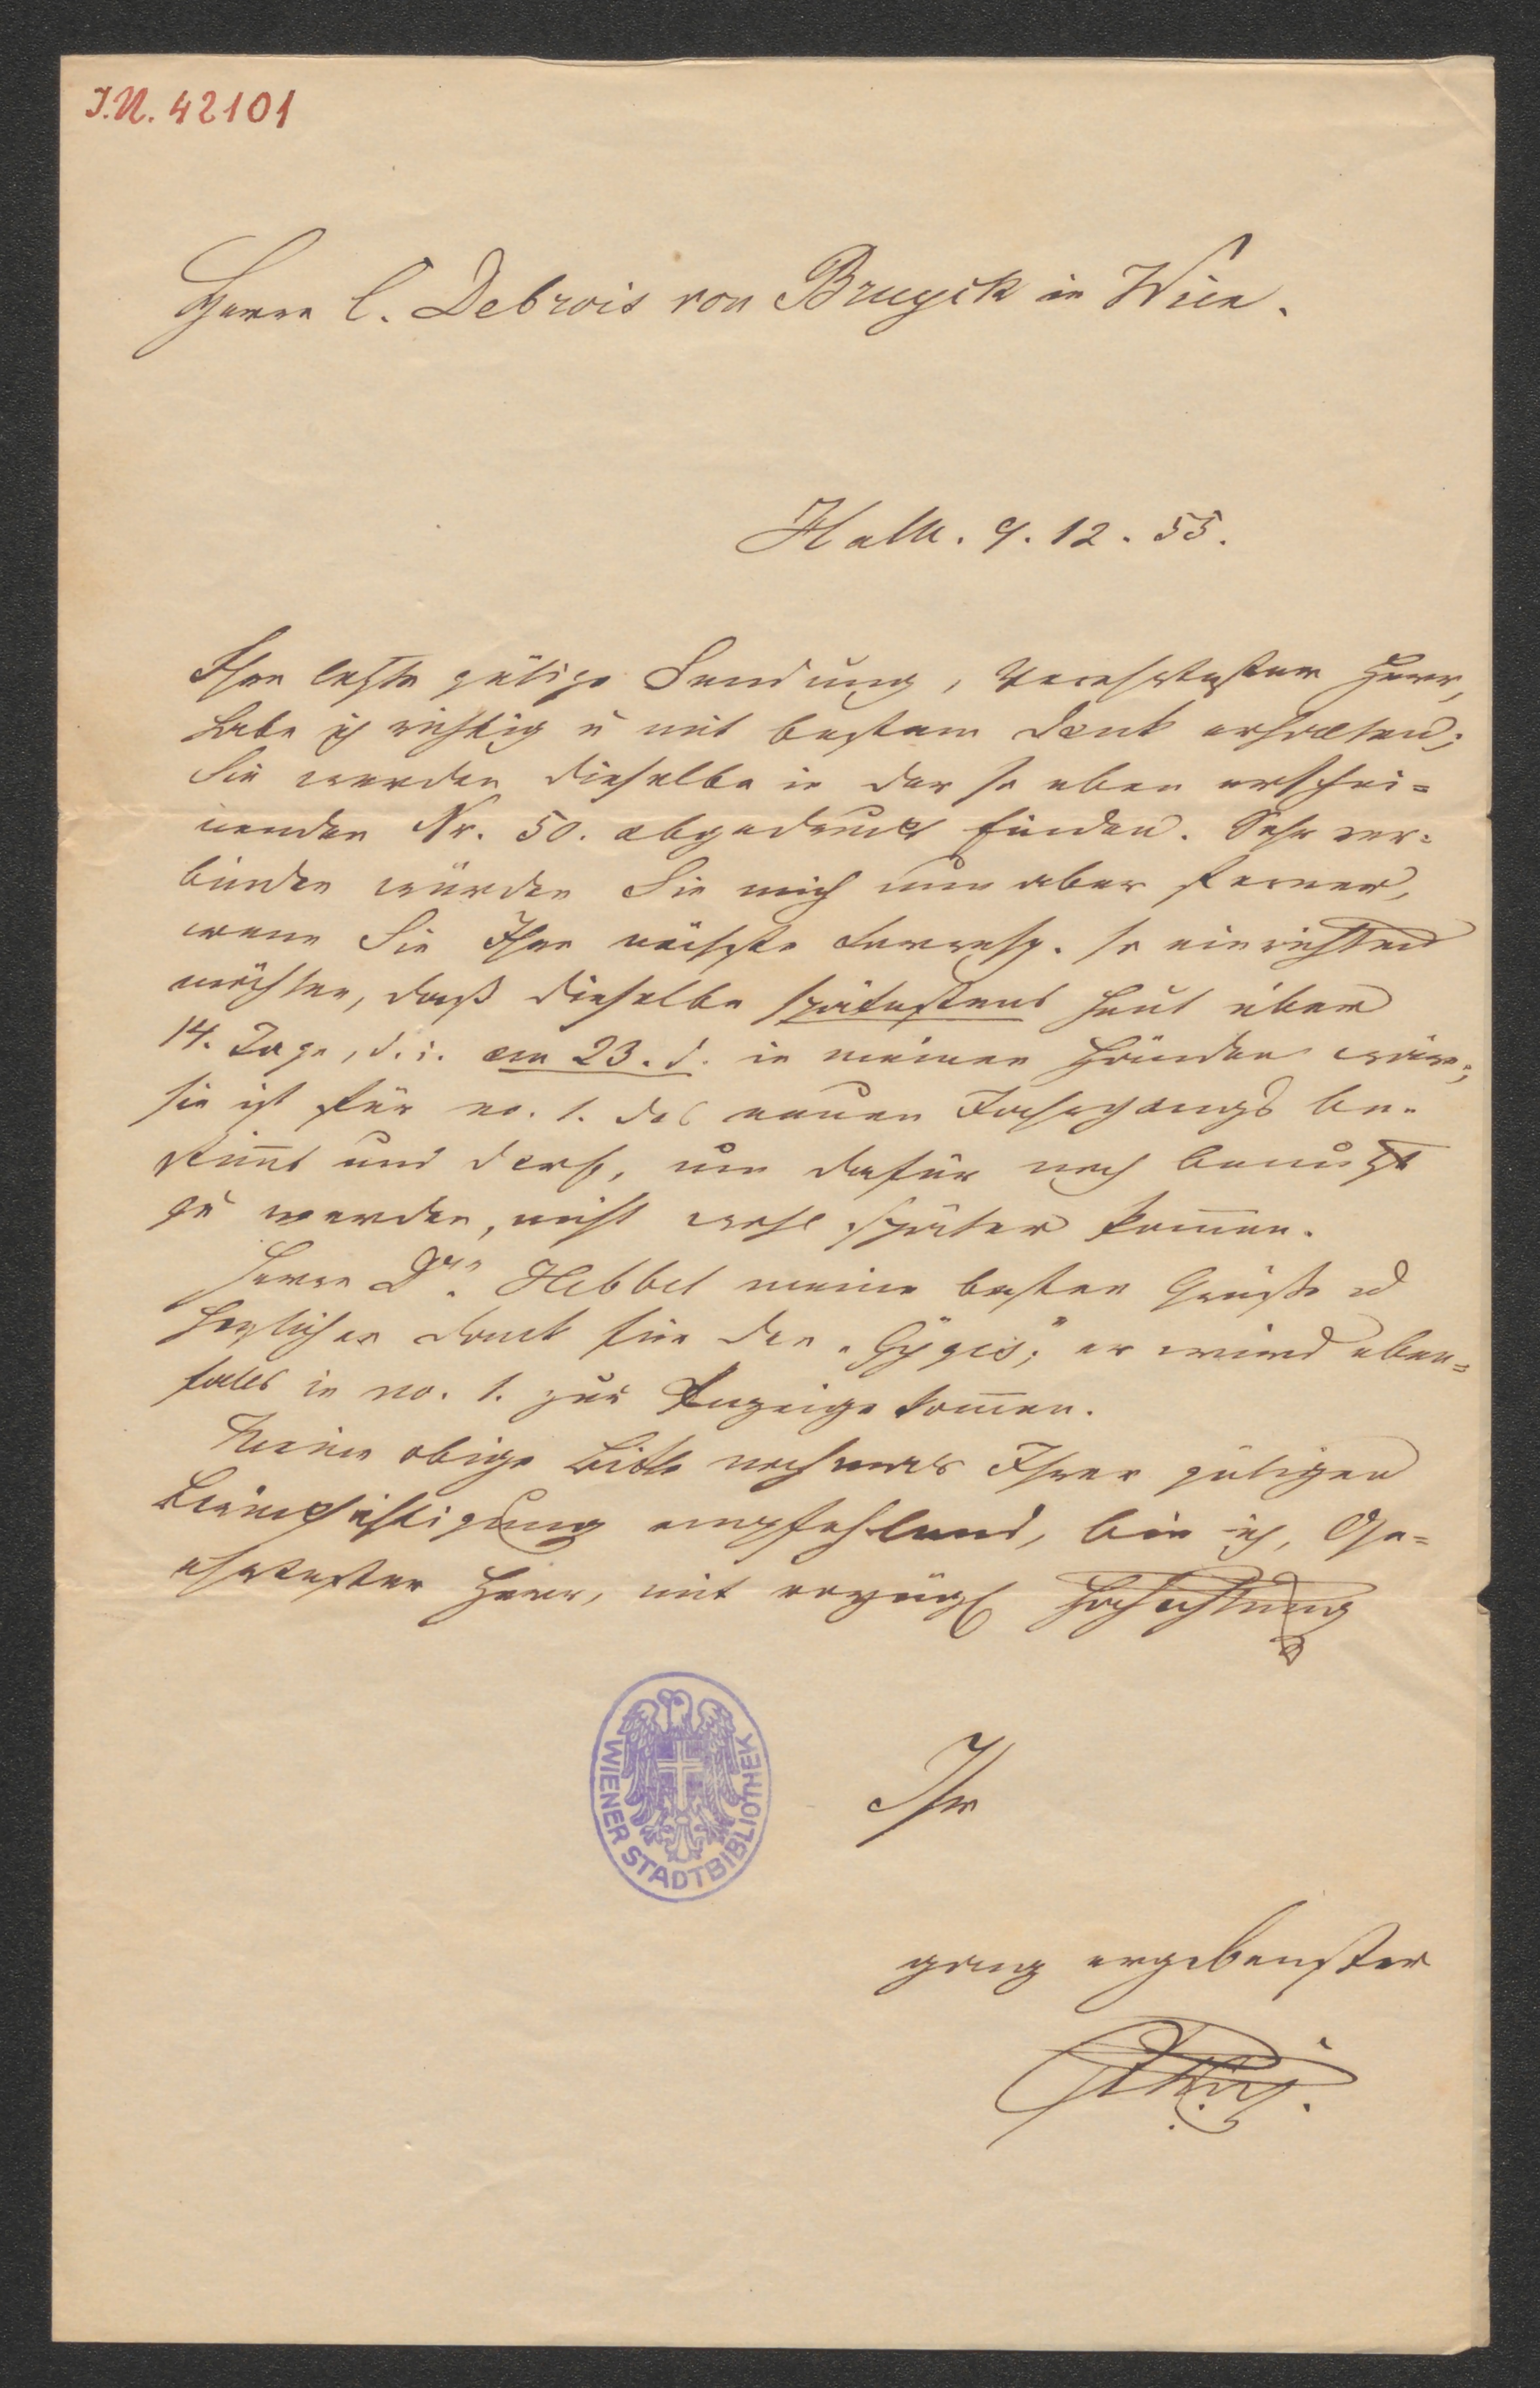 I.N. 42101
Herrn C. Debrois von Bruyck in Wien.
Halle. 9. 12. 55.
Ihre letzte gütige Sendung, Verehrtester Herr,
habe ich richtig u mit bestem Dank erhalten;
Sie werden dieselbe in der so eben erschei=
nenden Nr. 50. abgedruckt finden. Sehr ver=
binden würden Sie mich nun aber ferner,
wenn Sie Ihre nächste Corresp. so einrichten
möchten, daß dieselbe spätestens heut über
14. Tage, d. i. am 23. d. in meinen Händen wäre;
sie ist für no. 1. des neuen Jahrgangs be=
stim̅t und darf, um dafür noch benutzt
zu werden, nicht wohl später kom̅en.
Herrn Dr. Hebbel meine besten Grüße u
herzlichen Dank für den „Gyges;" er wird eben=
falls in no. 1. zur Anzeige kom̅en.
Meine obige Bitte nochmals Ihrer gütigen
Berücksichtigung empfehlend, bin ich, Ge=
ehrtester Herr, mit vorzügl Hochachtung
Ihr
ganz ergebenster
WIENER STADTBIBLIOTHEK